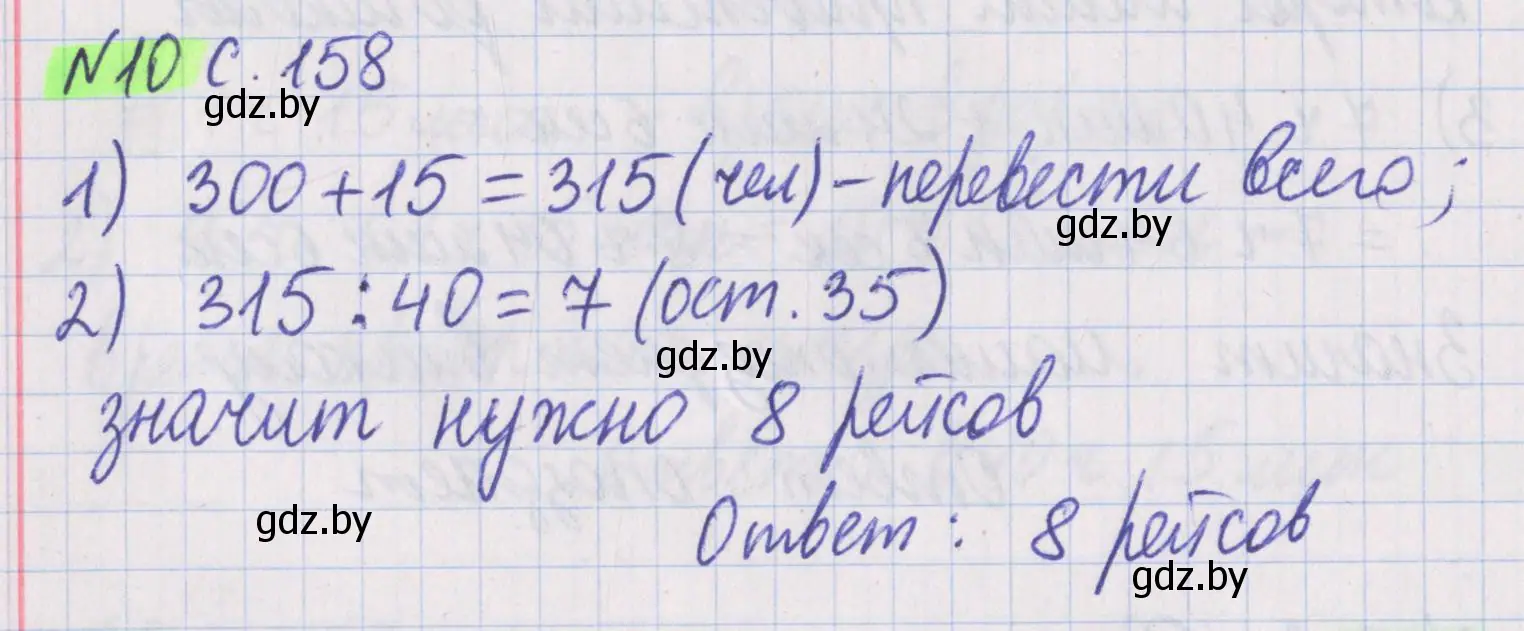 №10 с. 158
gdz.by
1) 300+15=315(чел)-перевезти всего;
gdz.by
2) 315:40=7 (ост. 35)
gdz.by
значит нужно 8 рейсов
gdz.by
Ответ: 8 рейсов
gdz.by